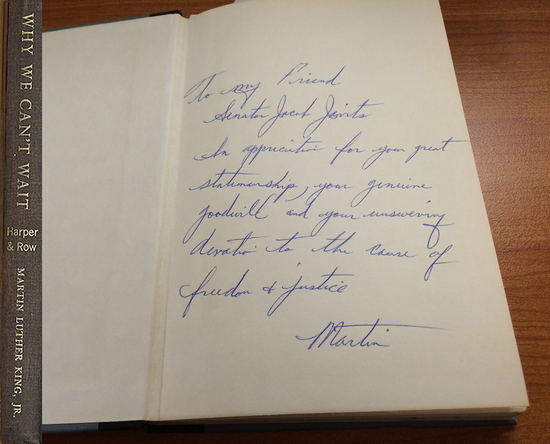 WHY WE CAN'T WAIT
Harper
& Row
MARTIN LUTHER KING, JR.
To my Friend
Senator Jacob Javits
In appreciation for your great
statesmanship, your genuine
goodwill and your unswerving
devotion to the cause of
freedom & justice
Martin